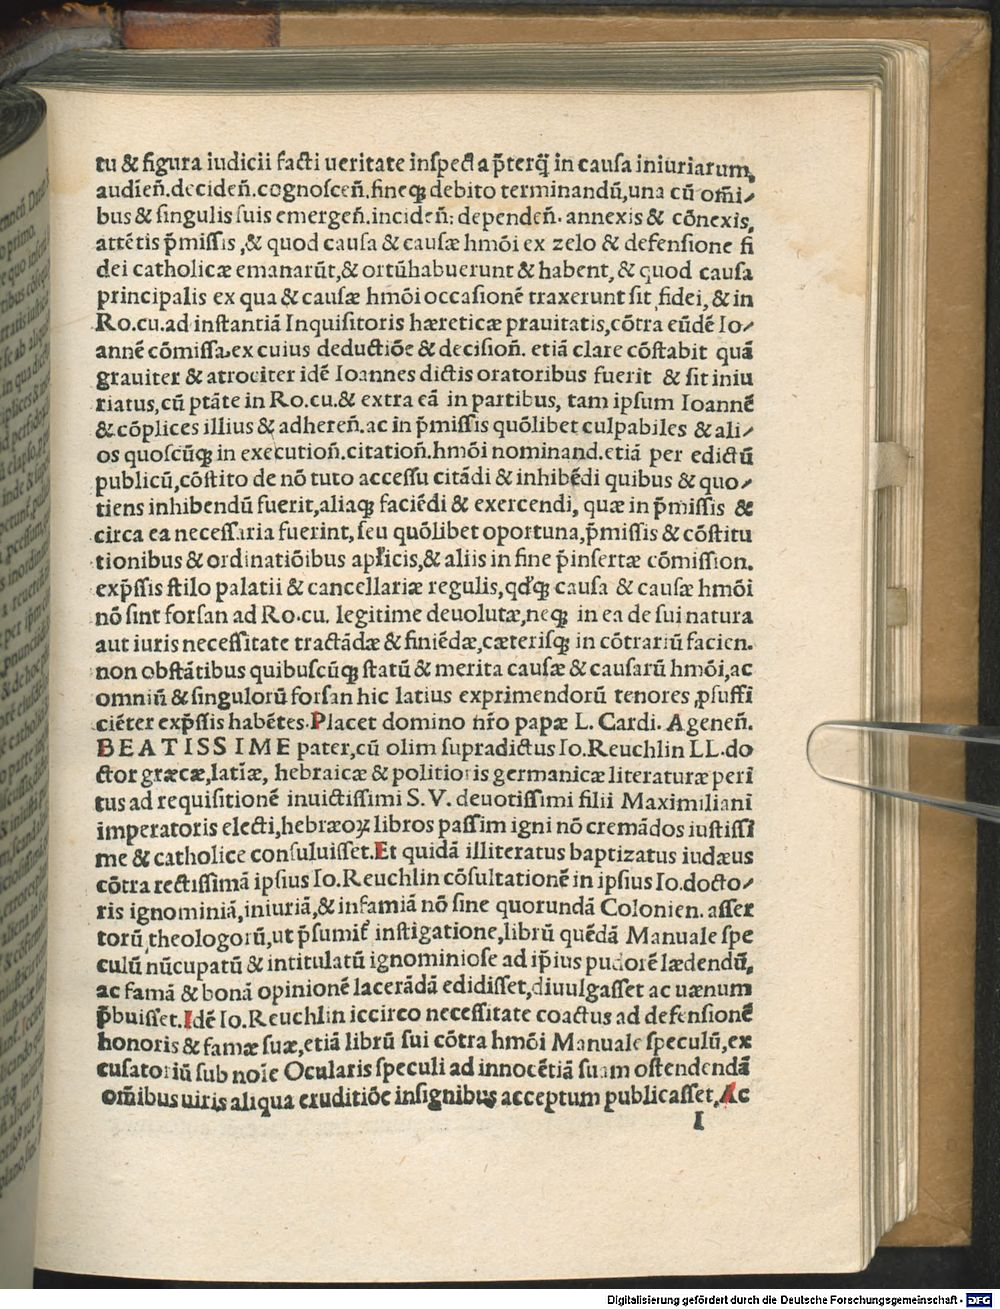 tu & figura iudicii facti ueritate inspecta p̄terq̄ in causa iniuriarum,
audien̄.deciden̄.cognoscen̄.fineq; debito terminandū,una cū om̄i
bus & singulis suis emergen̄.inciden̄: dependen̄. annexis & cōnexis,
attētis p̄missis ,& quod causa & causæ hmōi ex zelo & defensione fi
dei catholicæ emanarūt,& ortūhabuerunt & habent, & quod causa
principalis ex qua & causæ hmōi occasionē traxerunt sit fidei, & in
Ro.cu.ad instantiā Inquisitoris hæreticæ prauitatis,cōtra eūdē Io⸗
annē cōmissa,ex cuius deductiōe & decision̄. etiā clare cōstabit quā
grauiter & atrociter idē Ioannes dictis oratoribus fuerit & sit iniu
riatus,cū ptāte in Ro.cu.& extra eā in partibus, tam ipsum Ioannē
& cōplices illius & adheren̄.ac in p̄missis quōlibet culpabiles & ali⸗
os quoscūq; in execution̄.citation̄.hmōi nominand.etiā per edictū
publicū,cōstito de nō tuto accessu citādi & inhibēdi quibus & quo⸗
tiens inhibendū fuerit,aliaq; faciēdi & exercendi, quæ in p̄missis &
circa ea necessaria fuerint, seu quōlibet oportuna,p̄missis & cōstitu
tionibus & ordinatiōibus apl̄icis,& aliis in fine p̄insertæ cōmission.
exp̄ssis stilo palatii & cancellariæ regulis,qd̄q; causa & causæ hmōi
nō sint forsan ad Ro.cu. legitime deuolutæ,neq; in ea de sui natura
aut iuris necessitate tractādæ & finiēdæ,cæterisq; in cōtrariū facien.
non obstātibus quibuscūq; statū & merita causæ & causarū hmōi,ac
omniū & singulorū forsan hic latius exprimendorū tenores ꝓsuffi
ciēter exp̄ssis habētes.Placet domino nr̄o papæ L. Cardi. Agenen̄.
BEATISSIME pater,cū olim supradictus Io.Reuchlin LL.do
ctor græcæ,latīæ, hebraicæ & politioris germanicæ literaturæ peri
tus ad requisitionē inuictissimi S.V. deuotissimi filii Maximiliani
imperatoris electi,hebræoꝝ libros passim igni nō cremādos iustissi
me & catholice consuluisset.Et quidā illiteratus baptizatus iudæus
cōtra rectissimā ipsius Io.Reuchlin cōsultationē in ipsius Io.docto⸗
ris ignominiā,iniuriā,& infamiā nō sine quorundā Colonien. asser
torū theologorū,ut p̄sumit̄ instigatione,librū quēdā Manuale spe
culū nūcupatū & intitulatū ignominiose ad ip̄ius pudorē lædendū,
ac famā & bonā opinionē lacerādā edidisset,diuulgasset ac uænum
p̄buisset.Idē Io.Reuchlin iccirco necessitate coactus ad defensionē
honoris & famæ suæ,etiā librū sui cōtra hmōi Manuale speculū,ex
cusatoriū sub noīe Ocularis speculi ad innocētiā suam ostendendā
om̄ibus uiris aliqua eruditiōe insignibus acceptum publicasset, Ac
I
Digitalisierung gefördert durch die Deutsche Forschungsgemeinschaft - DFG